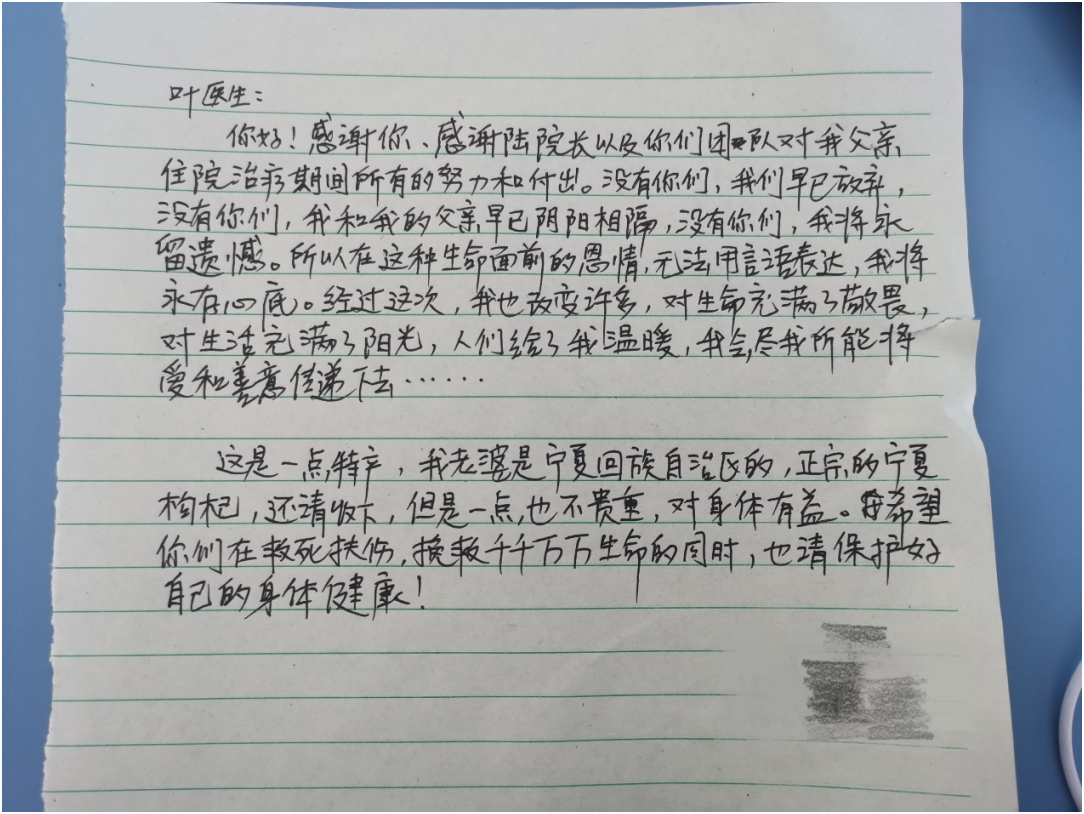 叶医生：
你好！感谢你、感谢陆院长以及你们团队对我父亲
住院治疗期间所有的努力和付出。没有你们，我们早已放弃，
没有你们，我和我的父亲早已阴阳相隔，没有你们，我将永
留遗憾。所以在这种生命面前的恩情，无法用言语表达，我将
永存心底。经过这次，我也改变许多，对生命充满了敬畏，
对生活充满了阳光，人们给了我温暖，我会尽我所能将
爱和善意传递下去……
这是一点特产，我老婆是宁夏回族自治区的，正宗的宁夏
枸杞，还请收下，但是一点，也不贵重，对身体有益。希望
你们在救死扶伤，挽救千千万万生命的同时，也请保护好
自己的身体健康！